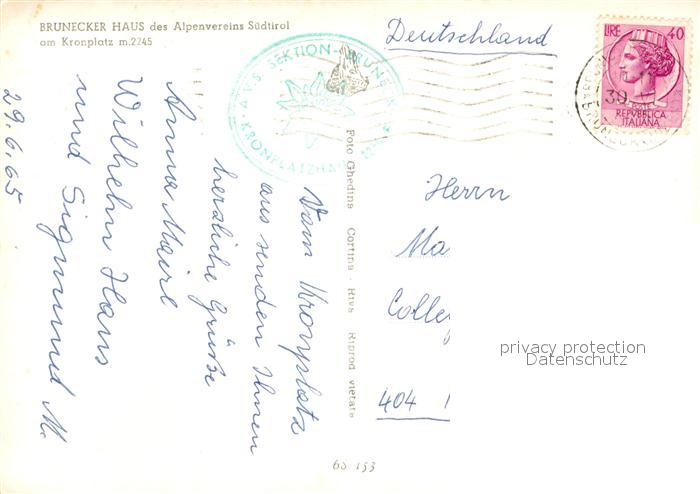 BRUNECKER HAUS des Alpenvereins Südtirol
am Kronplatz m.2245
Deutschland
LIRE 40
REPVBBLICA
ITALIANA
30
A.V.S. SEKTION BRUNECK
KRONPLATZHAUS
Vom Kronplatz
aus senden Ihnen
herzliche Grüße
Anna Mairl
Wilhelm Hans
und Sigmund M.
29.6.65
Foto Ghedina - Cortina - Riva Riprod vietata
Herrn
Ma
Colle
404
privacy protection
Datenschutz
60 153